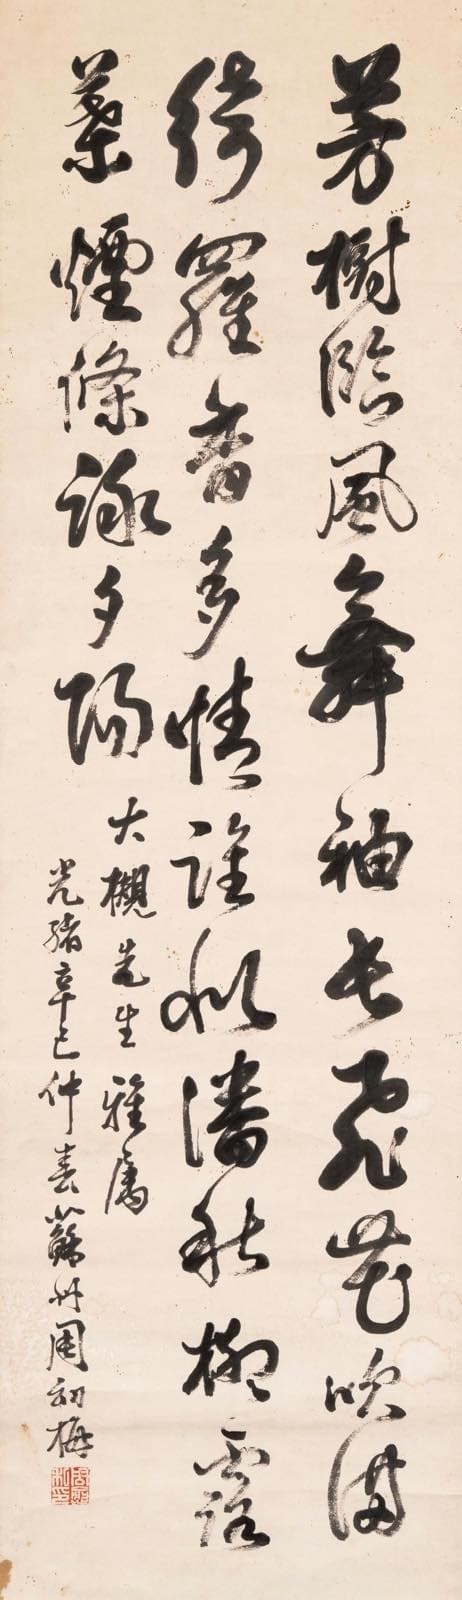 芳樹臨風舞袖長飛花吹滿
綺羅香多情誰似潘秋樹露
葉煙條詠夕陽
大櫬先生雅屬
光緒辛巳仲春蘇州周初梅